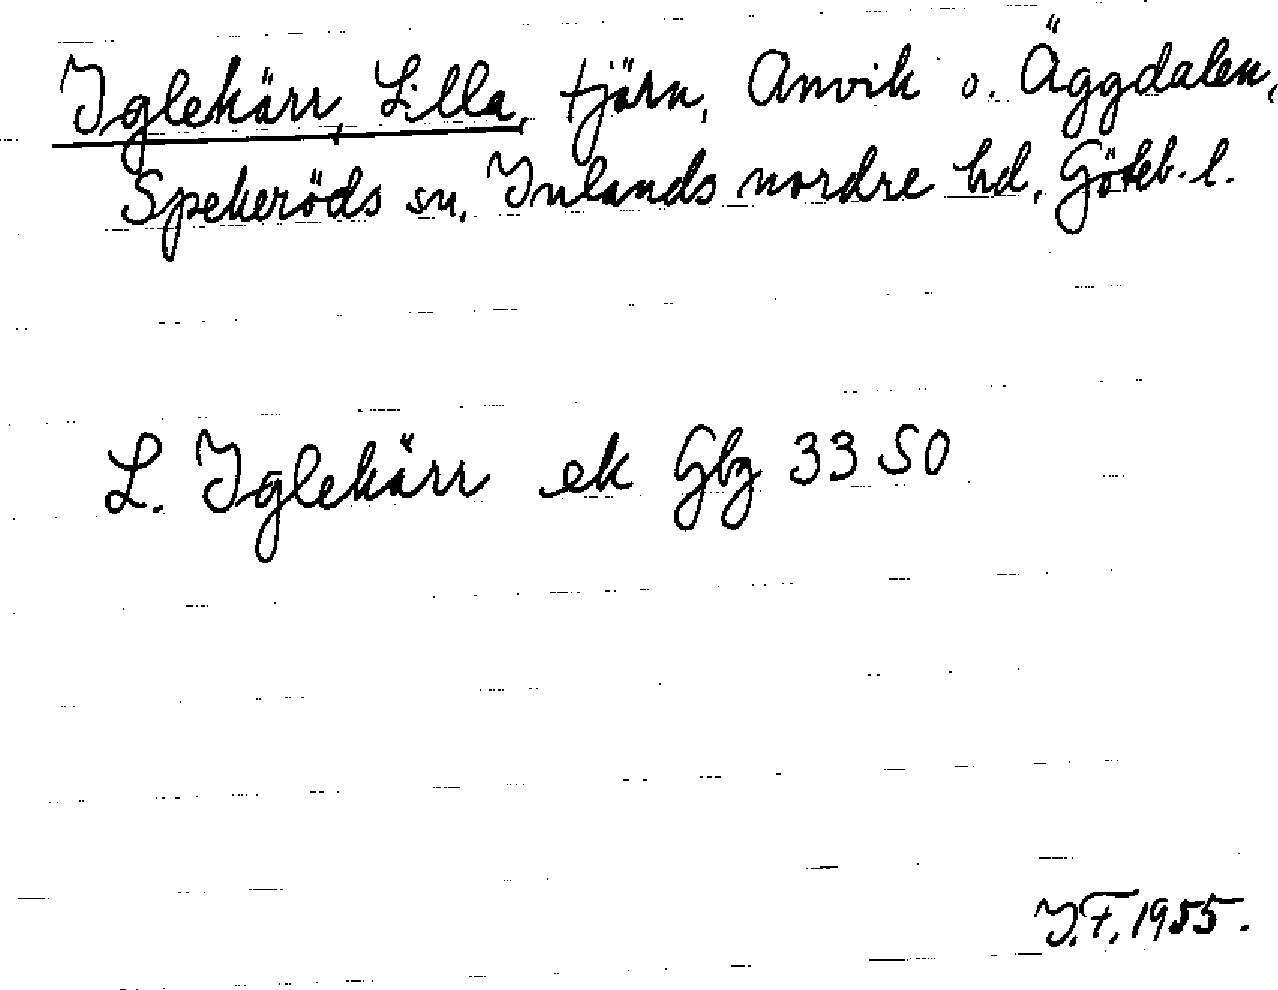 Iglekärr, Lilla, tjärn, Anvik o. Äggdalen,
Spekeröds sn, Inlands nordre hd, Göteb. l.
L. Iglekärr ek Gbg 3350
I.F. 1955.